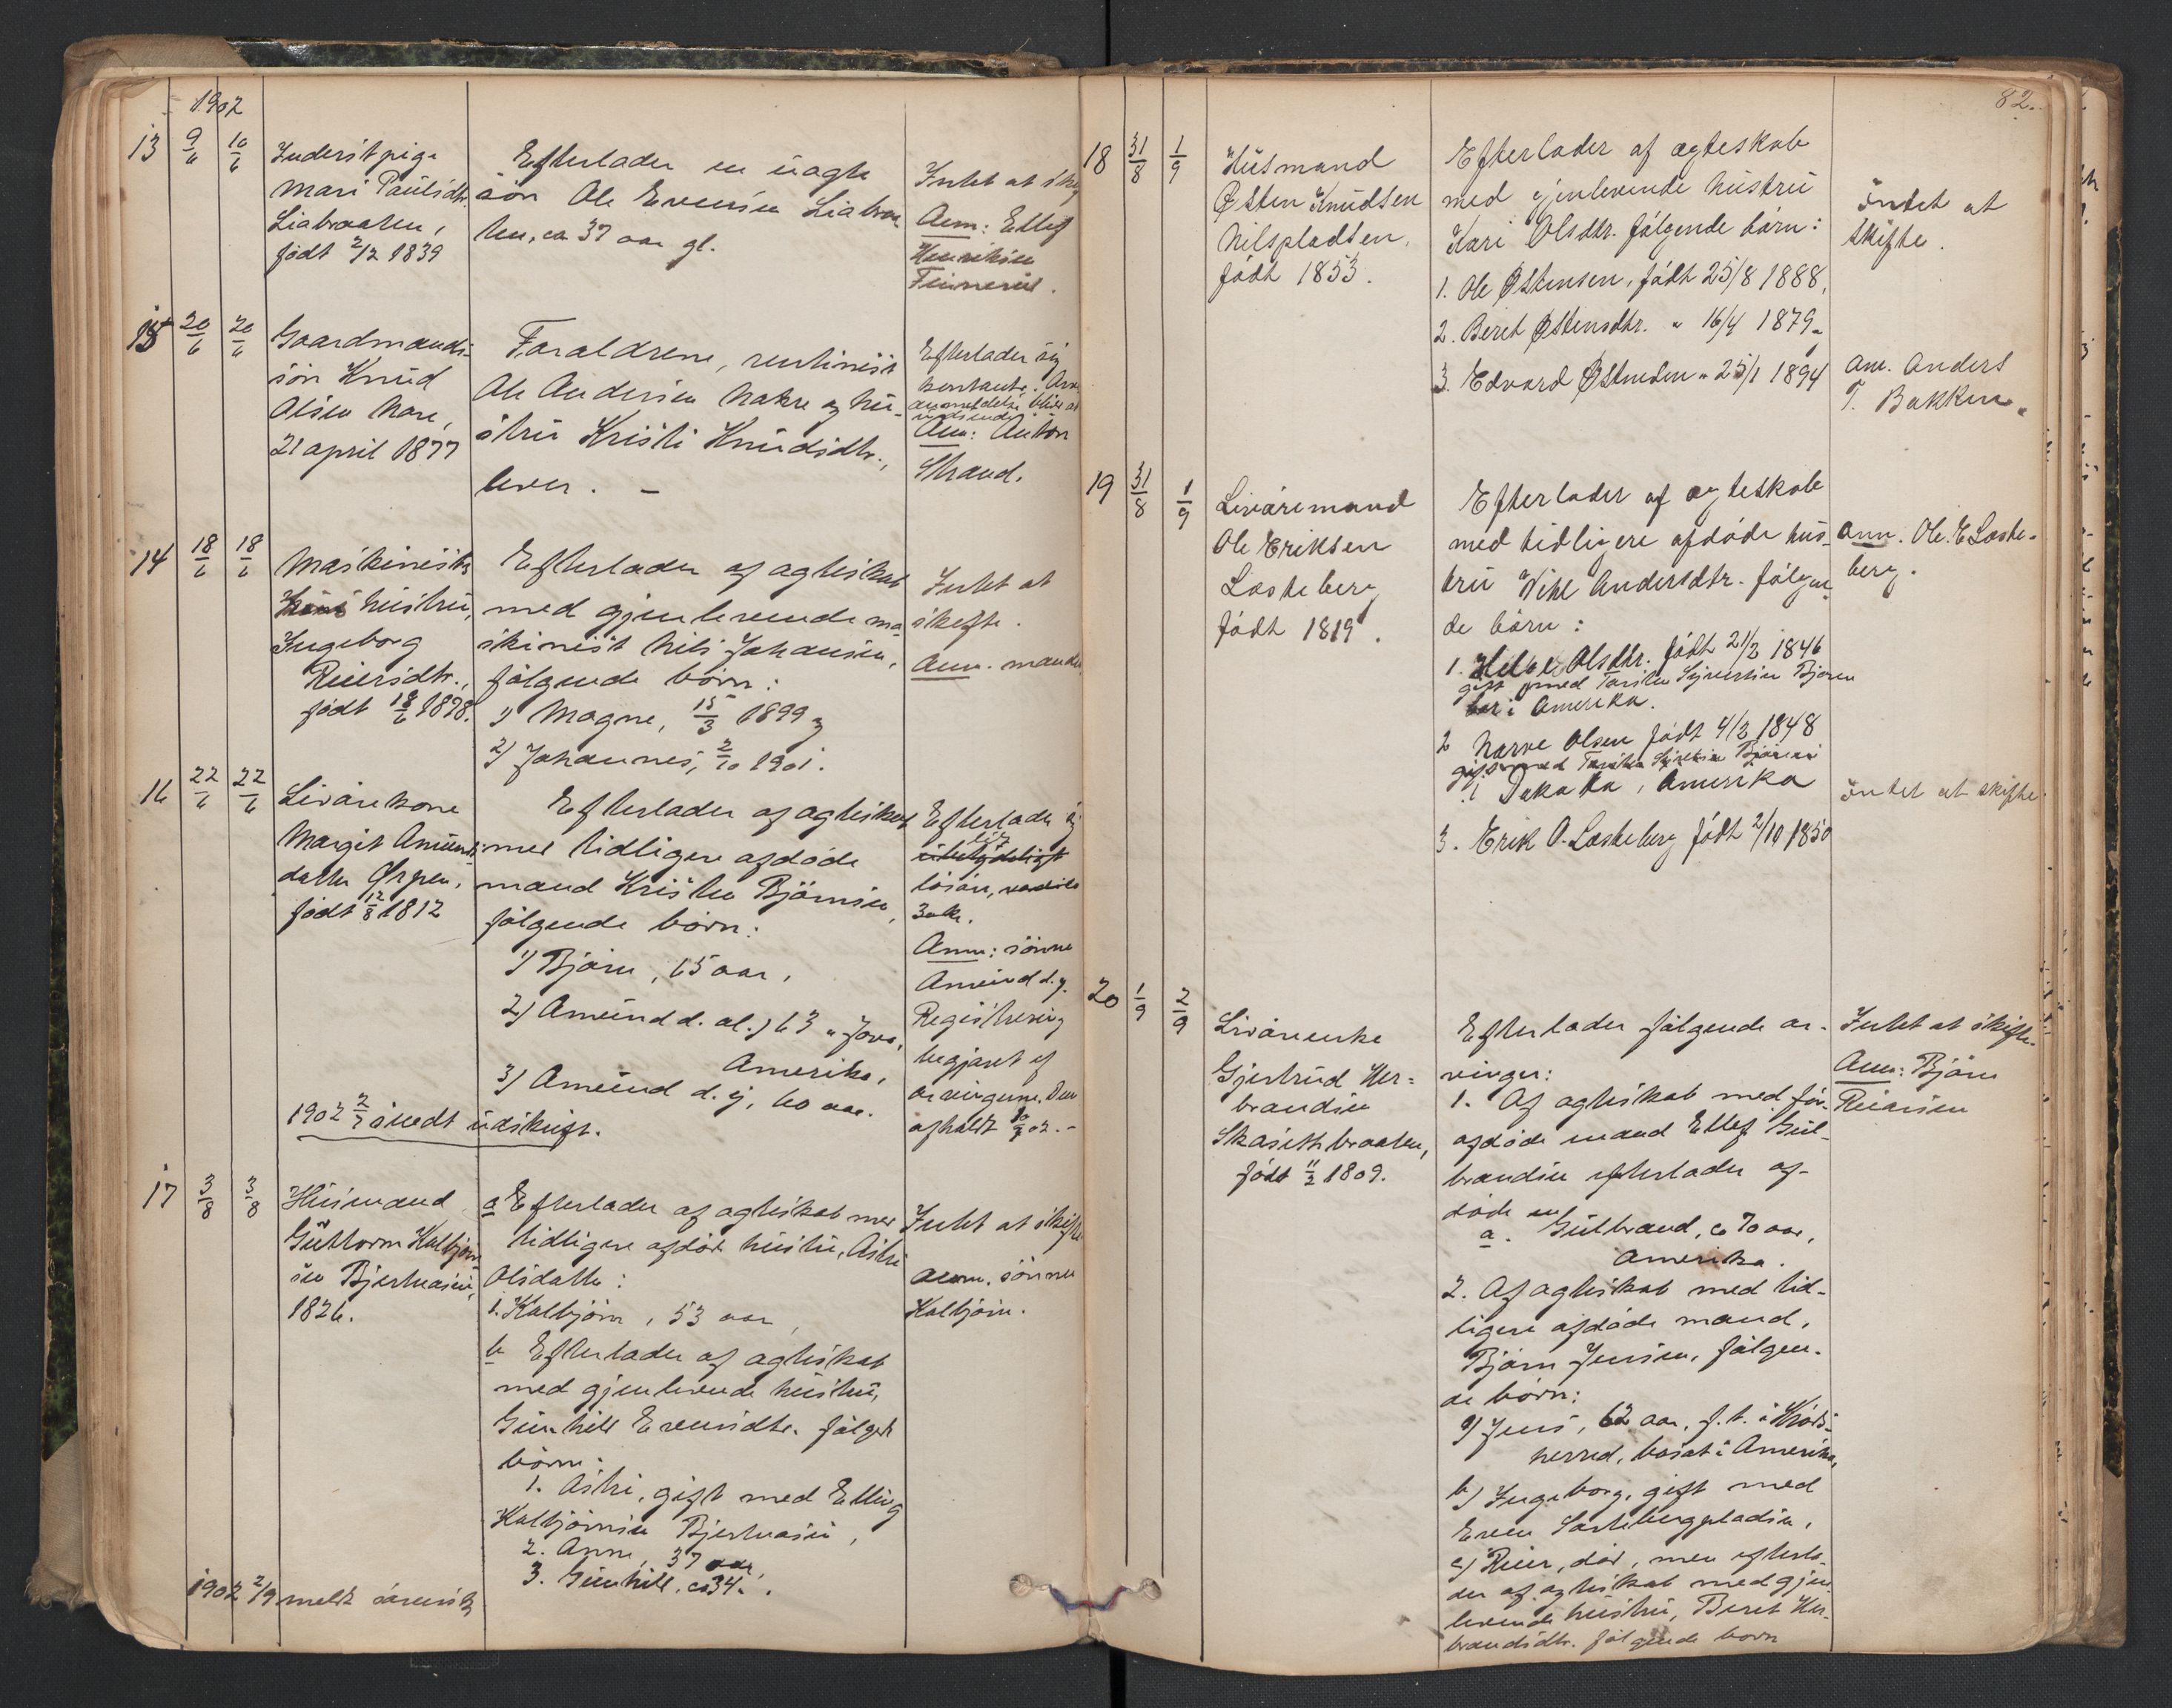 1902
13 9/6 10/6
Inderstpige
Mari Paulsdtr.
Liabraaten,
født 2/2 1839
Efterlader en uægte
søn Ole Evensen Liabraa
ten, ca 37 aar gl.
Intet at
Anm: Ellef
Henriksen
Finnerud.
15 20/6 20/6
Gaardmands-
søn Knud
Olsen
21 april 1877
Forældrene,
Ole Andersen og hu-
stru Kristi Knudsdtr.,
lever. –
Efterlader sig
kontante.
Anm: Anton
Strand.
14 18/6 18/6
Maskinist
hustru,
Ingeborg
Reiersdtr.,
født 18/6 1898.
Efterlader af ægteskab
med gjenlevende ma-
skinist Nils Johansen,
følgende børn:
1) Magne, 15/3 1899 og
2) Johannes, 2/10 1901.
Intet at
skifte.
Anm. manden
16 22/6 22/6
Livørekone
Margit Amunds-
datter Ørpen,
født 12/8 1812
Efterlader af ægteskab
med tidligere afdøde
mand Kristen Bjørnsen,
følgende børn:
1) Bjørn, 65 aar,
2) Amund d. æl., 63 " Jova,
Amerika,
3) Amund d. y., 60 aar.
Efterlader sig
ubetydeligt
løsøre,
30 kr.
Anm: sønnen
Amund d.y.
Registrering
begjæret af
arvingerne. Den
afholdt
1902 2/7 sendt udskrift.
17 3/8 3/8
Husmand
Guttorm Kolbjørn
sen Bjertnæsen,
1826.
a Efterlader af ægteskab med
tidligere afdød hustru, Astri
Olsdatter:
1. Kolbjørn, 53 aar,
b Efterlader af ægteskab
med gjenlevende hustru,
Gunhild Evensdtr. følgende
børn:
1. Astri, gift med Elling
Kolbjørnsen Bjertnæsen,
2. Anne, 37 aar
3. Gunhild, ca 34 ".
Intet at skifte
Anm. sønnen
Kolbjørn.
1902 2/9 meldt sorensk
82.
18 31/8 1/9
Husmand
Østen Knudsen
Nilspladsen.
født 1853.
Efterlader af ægteskab
med gjenlevende hustru
Kari Olsdtr. følgende børn:
1. Ole Østensen, født 25/8 1888,
2. Beret Østensdtr. " 16/4 1879.
3. Edvard Østensen " 25/1 1894
intet at
skifte.
Anm. Anders
T. Bakken.
19 31/8 1/9
Livøremand
Ole Eriksen
Lasteberg
født 1819.
Efterlader af ægteskab
med tidligere afdøde hus-
tru Andersdtr. følgen-
de børn:
1. Olsdtr. født 21/2 1846
gift med Torsten Syversen Bjøre
bor i Amerika.
2 Narve Olsen født 4/2 1848
gift med Torsten
i Dakota, Amerika
3. Erik O. Lasteberg født 2/10 1850
Anm. Ole. E Laste-
berg.
intet at skifte.
20 1/9 2/9
Livørenke
Gjertrud Her-
brandsen
Skasethbraaten,
født 11/2 1809.
Efterlader følgende ar-
vinger:
1. Af ægteskab med før
afdøde mand Ellef Gul-
brandsen efterlader af-
døde en
a. Gulbrand, ca 70 aar,
Amerika.
2. Af ægteskab med tid-
ligere afdøde mand,
Bjørn Jensen, følgen-
de børn:
a) Jens, 62 aar, f. t. i Krøds-
herred, bosat i Amerika,
b) Ingeborg, gift med
Even Lastebergpladsen,
c) Reier, død, men efterla-
der af ægteskab med gjen-
levende hustru, Beret Her-
brandsdtr. følgende børn
Intet at skifte.
Anm: Bjørn
Reiersen